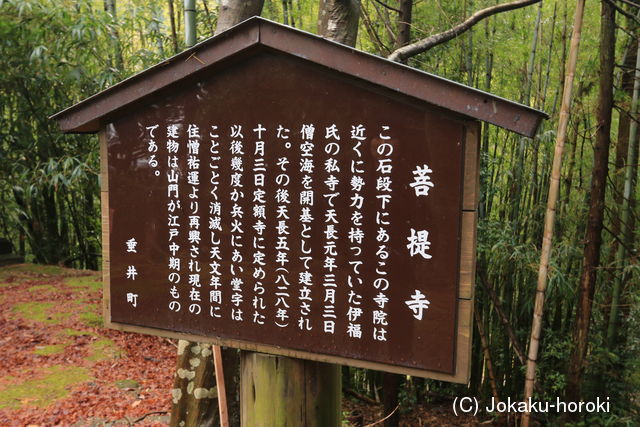 菩提寺
この石段下にあるこの寺院は
近くに勢力を持っていた伊福
氏の私寺で天長元年三月三日
僧空海を開基として建立され
た。その後天長五年(八二八年)
十月三日定額寺に定められた
以後幾度か兵火にあい堂字は
ことごとく消滅し天文年間に
住僧祐運より再興され現在の
建物は山門が江戸中期のもの
である。
垂井町
(C) Jokaku-horoki